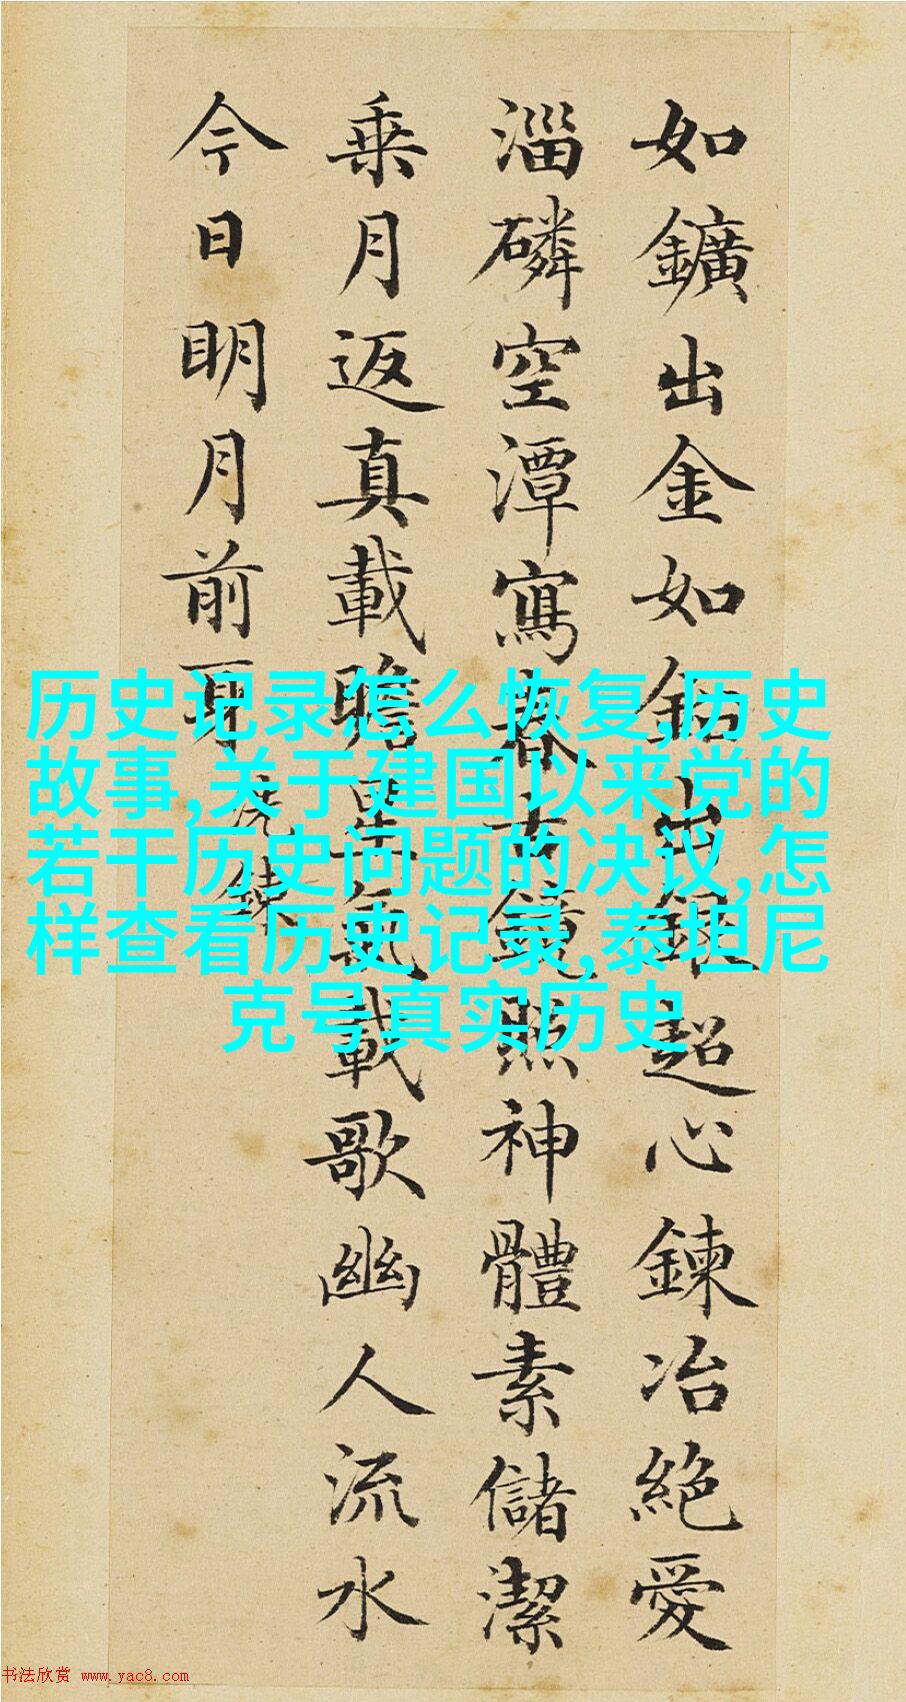 如鑛出金如鉛出銀超心鍊冶絕愛
淄磷空潭寫春古鏡照神體素儲潔
乗月返真載瞻星氣載歌幽人流水
今日明月前身
洗鍊
历史记录怎么恢复,历史
故事,关于建国以来党的
若干历史问题的决议,怎
样查看历史记录,泰坦尼
克号真实历史
书法欣赏 www.yac8.com